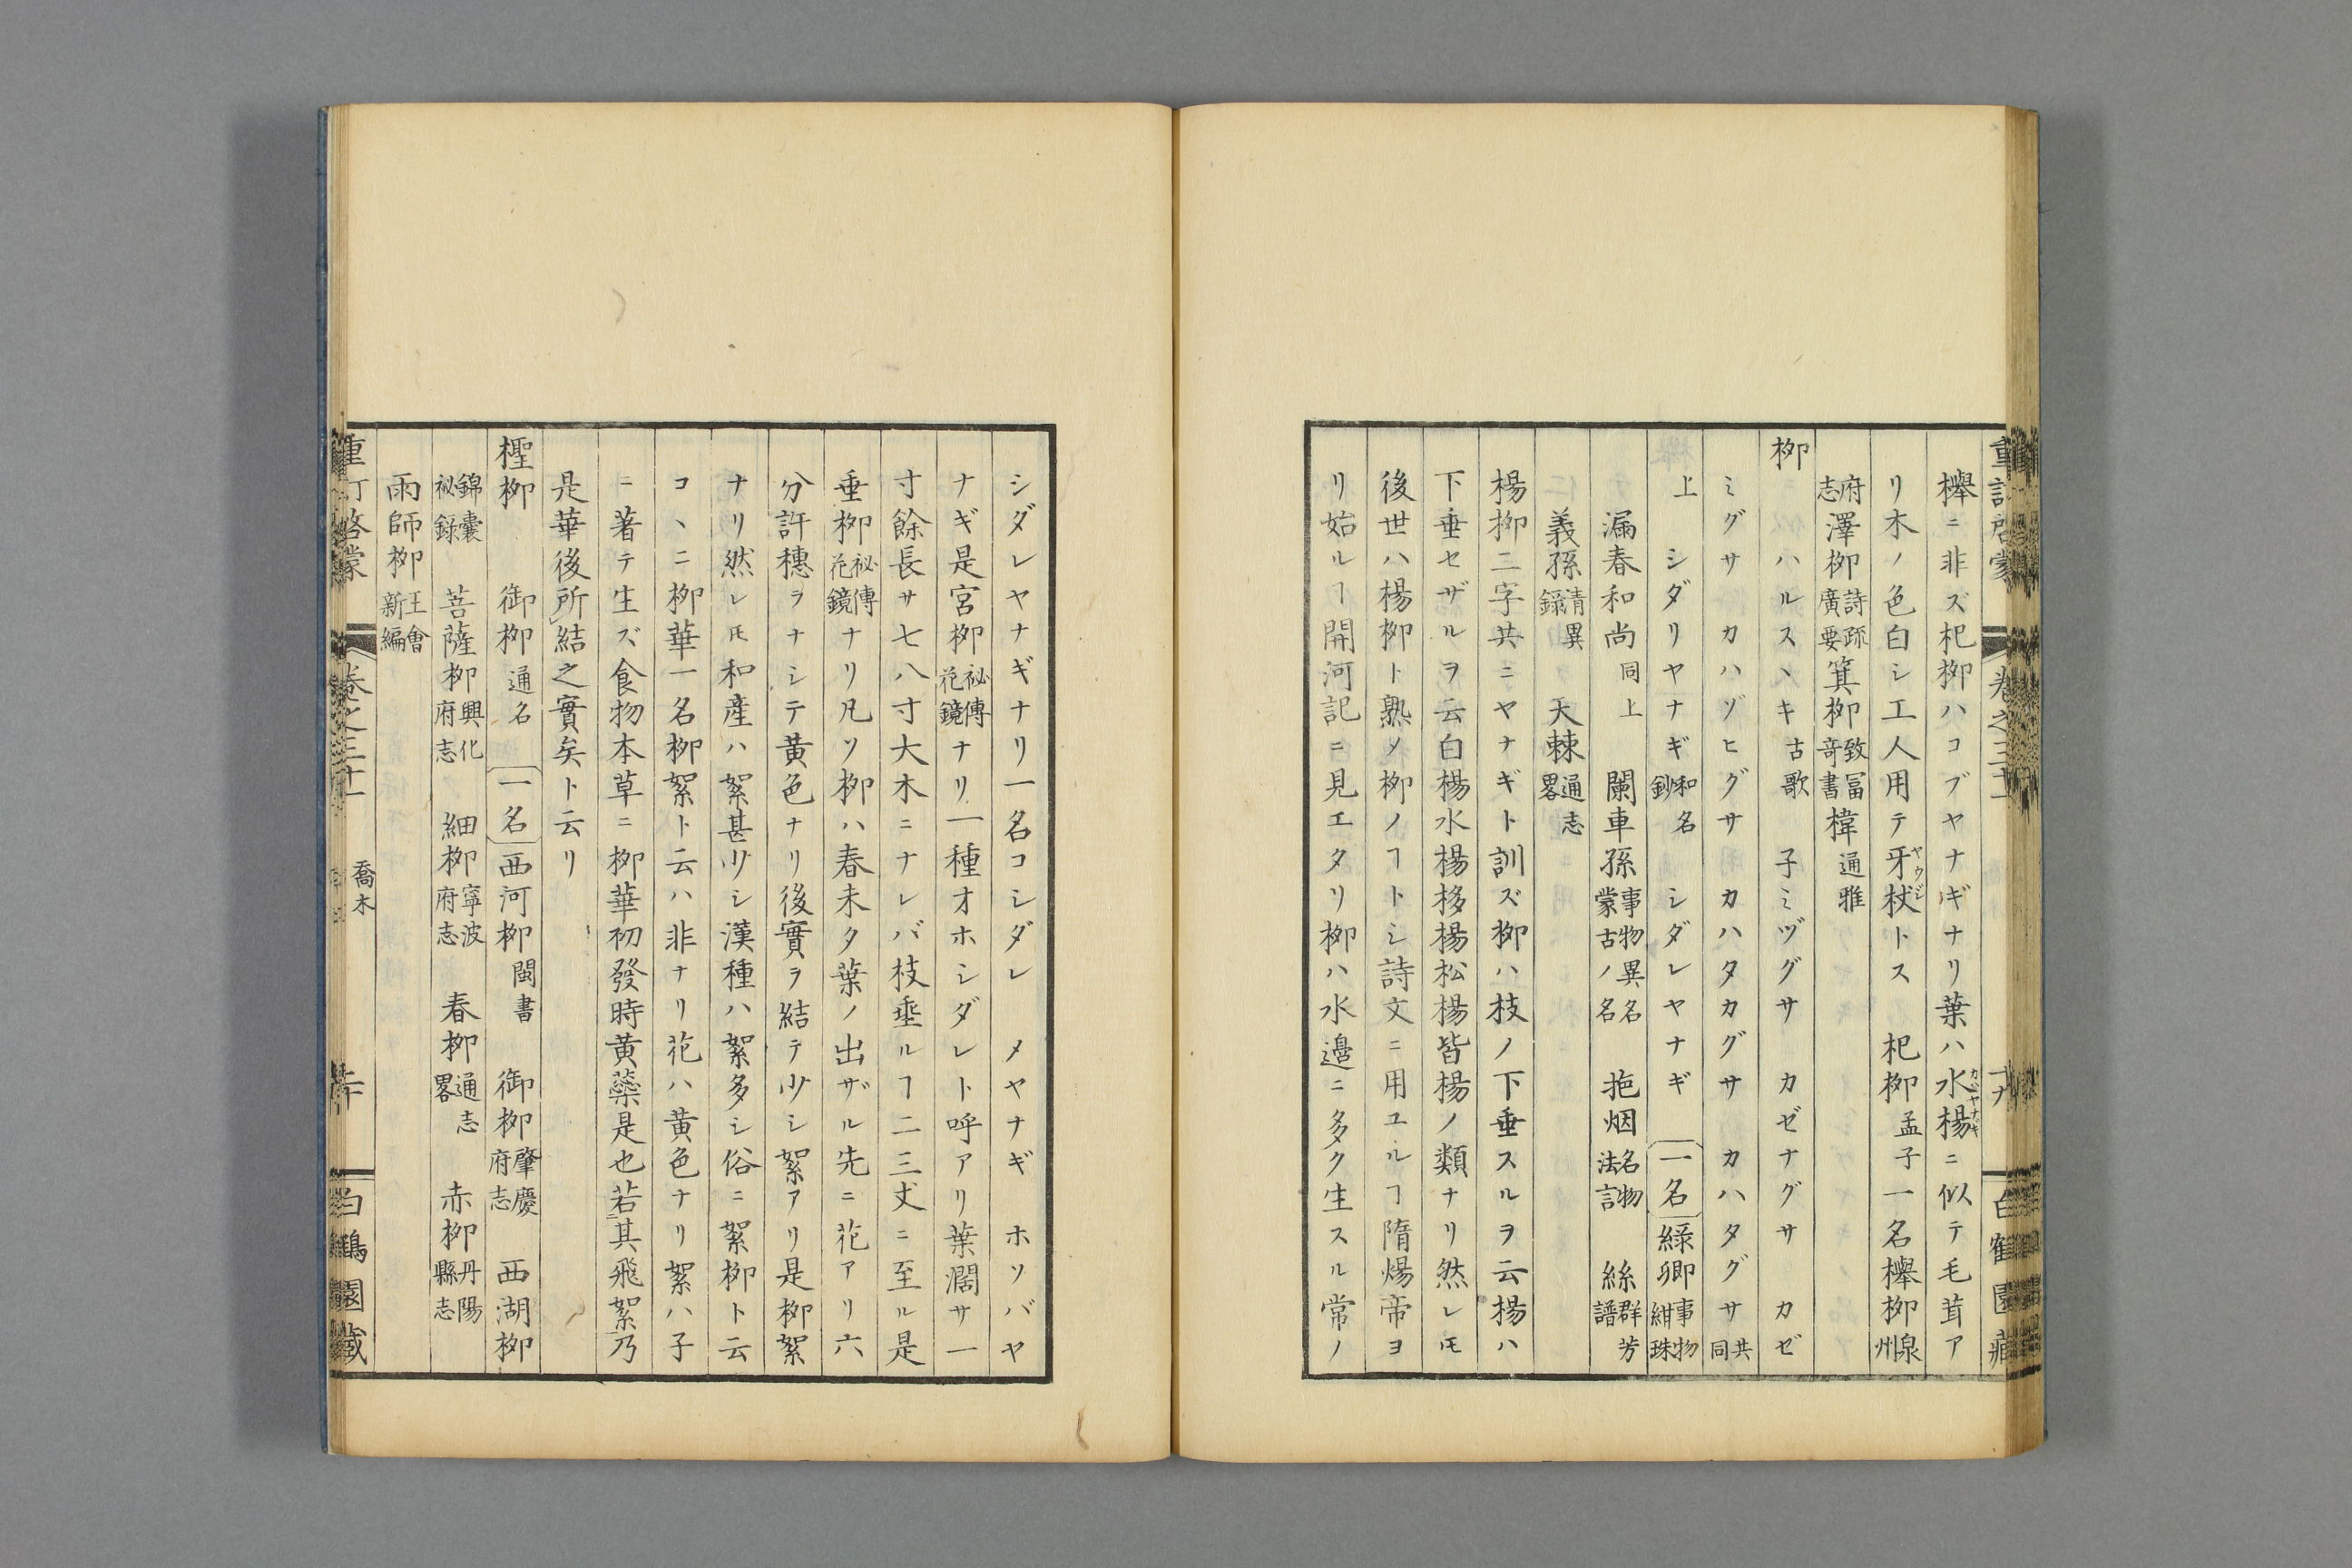 重訂啓蒙 卷之三十一 十九 白鶴園藏
櫸ニ非ズ杞柳ハコブヤナギナリ葉ハ水楊カハヤナギニ似テ毛茸ア
リ木ノ色白シ工人用テ牙杖ヤウジトス 杞柳孟子一名櫸柳泉州
府志澤柳詩疏廣要箕柳致冨竒書楎通雅
柳 ハルスヽキ古歌 子ミヅグサ カゼナグサ カゼ
ミグサ カハゾヒグサ カハタカグサ カハタグサ共同
上 シダリヤナギ和名鈔 シダレヤナギ 一名緑卿事物紺珠
漏春和尚同上 闌車孫事物異名蒙古ノ名 拖烟名物法言 絲群芳譜
義孫清異錄 天棘通志畧
楊柳二字共ニヤナギト訓ズ柳ハ枝ノ下垂スルヲ云楊ハ
下垂セザルヲ云白楊水楊栘楊松楊皆楊ノ類ナリ然レ𪜈
後世ハ楊柳ト熟ソ柳ノヿトシ詩文ニ用ユルヿ隋煬帝ヨ
リ始ルヿ開河記ニ見エタリ柳ハ水邉ニ多ク生スル常ノ
シダレヤナギナリ一名コシダレ メヤナギ ホソバヤ
ナギ是宮柳祕傳花鏡ナリ一種オホシダレト呼アリ葉濶サ一
寸餘長サ七八寸大木ニナレバ枝垂ルヿ二三𠀋ニ至ル是
垂柳祕傳花鏡ナリ凡ソ柳ハ春未タ葉ノ出ザル先ニ花アリ六
分許穗ヲナシテ黄色ナリ後實ヲ結テ少シ絮アリ是柳絮
ナリ然レ𪜈和産ハ絮甚少シ漢種ハ絮多シ俗ニ絮柳ト云
コヽニ柳華一名柳絮ト云ハ非ナリ花ハ黄色ナリ絮ハ子
ニ著テ生ズ食物本草ニ柳華初發時黄蘂是也若其飛絮乃
是華後所結之實矣ト云リ
檉柳 御柳通名 一名西河柳閩書 御柳肇慶府志 西湖柳
錦囊祕錄 菩薩柳興化府志 細柳寧波府志 春柳通志畧 赤柳丹陽縣志
雨師柳王會新編
重訂啓蒙 卷之三十一 喬木 二十 白鶴園藏